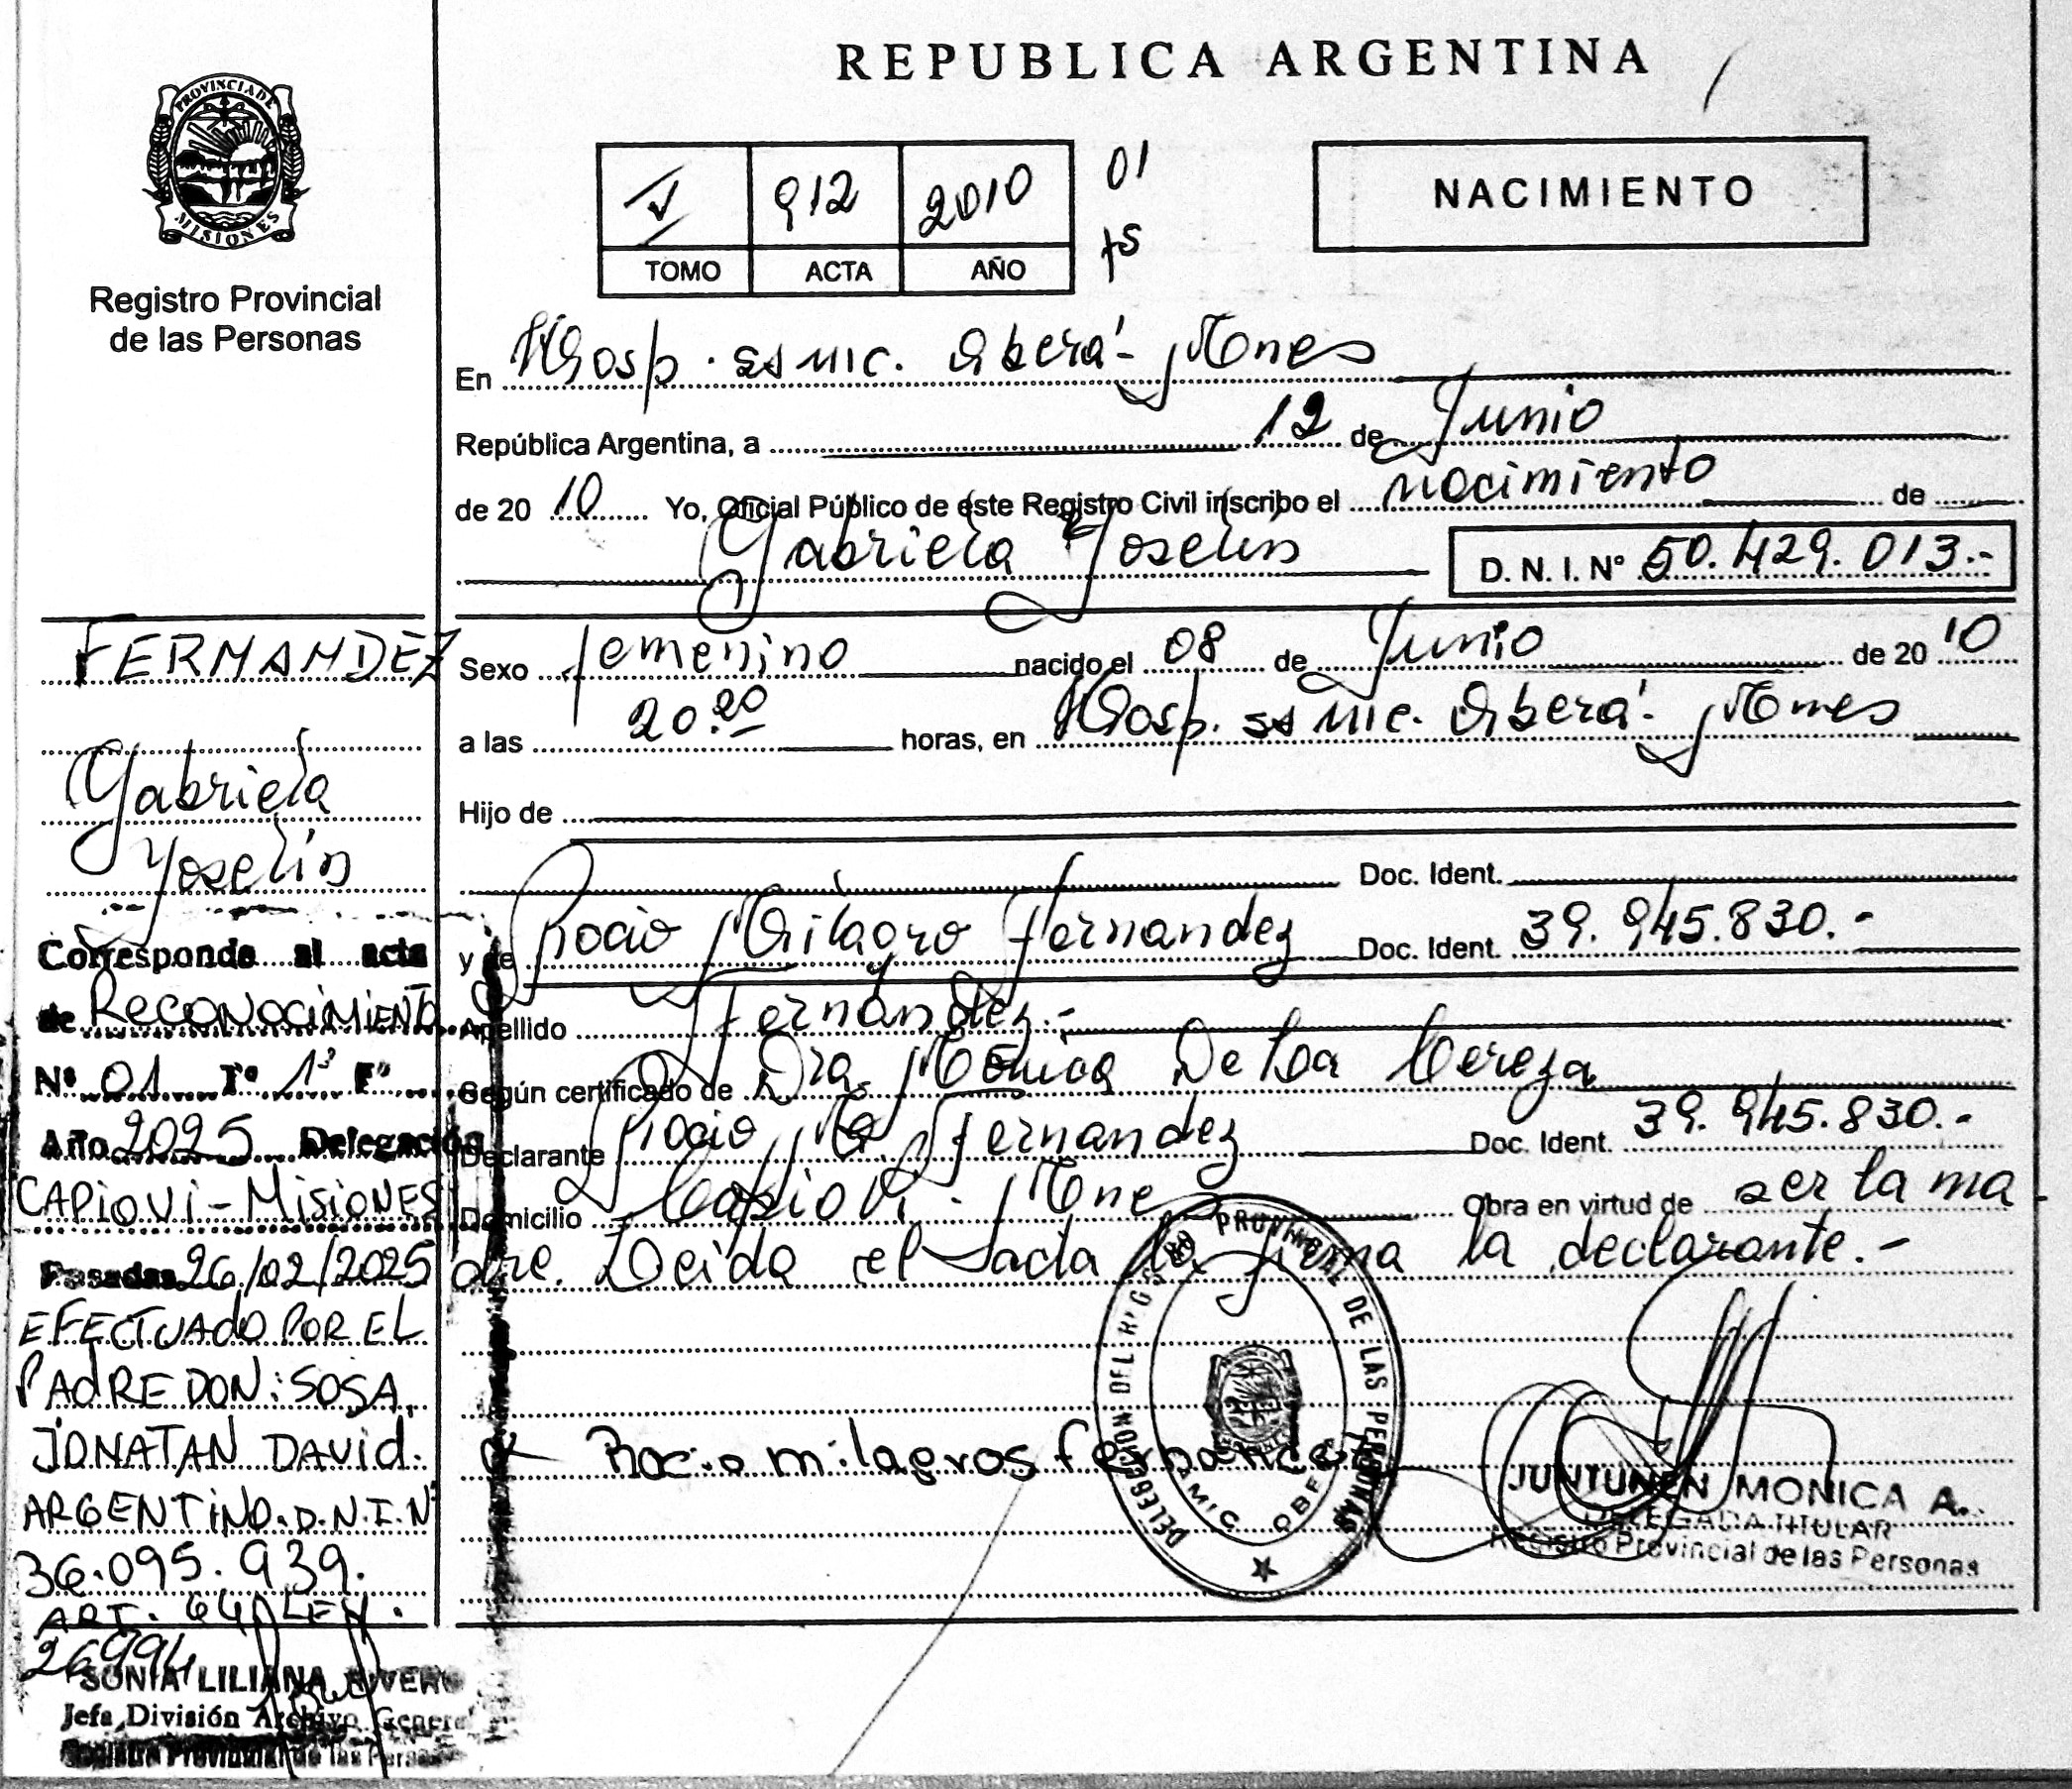 PROVINCIA DE
MISIONES
Registro Provincial
de las Personas
REPUBLICA ARGENTINA
912 2010 01
TOMO ACTA AÑO
NACIMIENTO
En Hosp. SS MIC. Oberá - Mnes
República Argentina, a 12 de Junio
de 20 10 Yo, Oficial Público de este Registro Civil inscribo el nacimiento de
Gabriela Yoselin D. N. I. Nº 50.429.013.-
Sexo femenino nacido el 08 de Junio de 20 10
a las 20.20 horas, en Hosp. SS MIC. Oberá - Mnes
Hijo de
Doc. Ident.
y de Rocio Milagro Fernandez Doc. Ident. 39.945.830.-
Apellido Fernández.-
Según certificado de Dra. Mónica De La Cereza
Declarante Rocio M. Fernandez Doc. Ident. 39.945.830.-
Domicilio Capiovi - Mnes Obra en virtud de ser la ma
dre. Leida el acta la firma la declarante.-
Rocio milagros fernandez
DELEGACION DEL REGISTRO PROVINCIAL DE LAS PERSONAS
JUNTUNEN MONICA A.
DELEGADA TITULAR
Registro Provincial de las Personas
FERNANDEZ
Gabriela
Yoselin
Corresponde al acta
de RECONOCIMIENTO
Nº 01 Tº 1º Fº
Año 2025 Delegación
CAPIOVI - MISIONES
Posadas 26/02/2025
EFECTUADO POR EL
PADRE DON: SOSA
JONATAN DAVID.
ARGENTINO. D.N.I. Nº
36.095.939.
ART. 64 LEY.
26994
SONIA LILIANA RIVERO
Jefa División Archivo General
Registro Provincial de las Personas